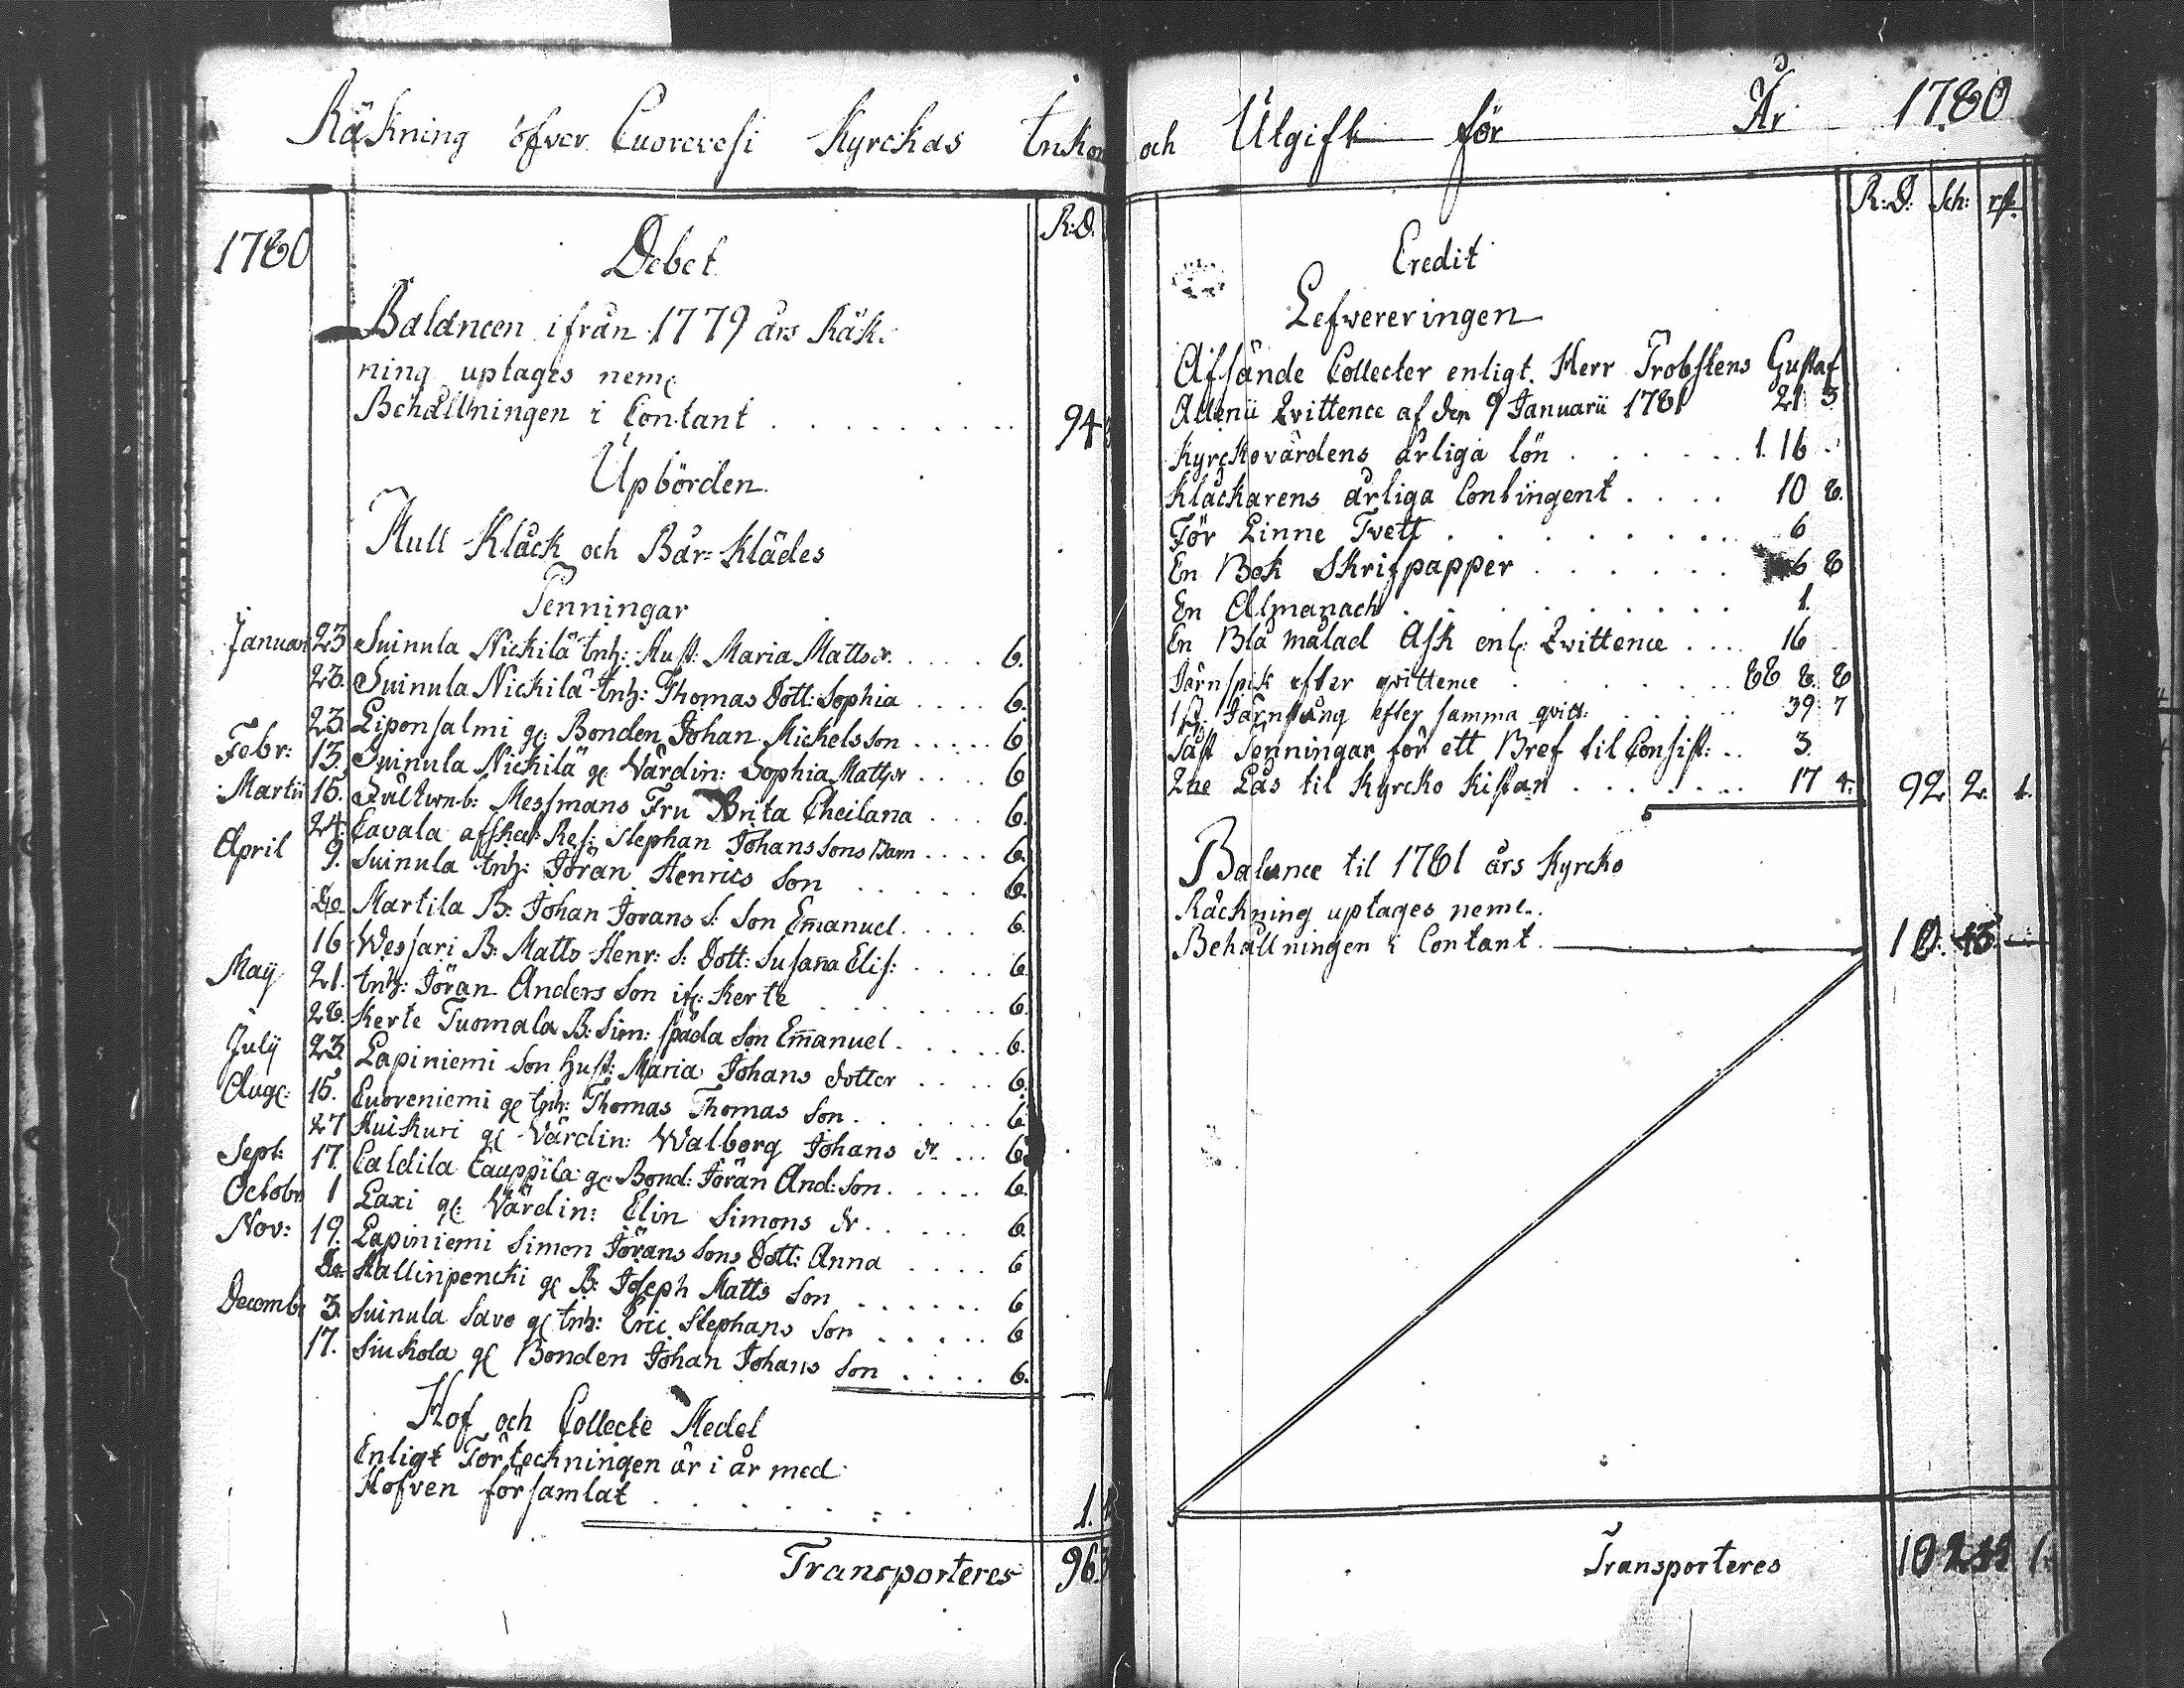 Räkning öfver Cuorevesi Kyrckas Inkom
1780
R:D.
Debet
Balancen ifrån 1779 års Räk-
ning uptages neml.
Behållningen i Contant . . . . . . . . 94
Upbörden
Mull Klåck och Bår-Klädes
Penningar
Januar 23 Suinula Nickilä Inh: Hust: Maria Matts dr. . . . . 6.
23. Suinula Nickilä Inh: Thomas Dott: Sophia . . . . 6.
23. Liponsalmi gl: Bonden Johan Mickels son . . . . . 6
Febr: 13. Suinula Nickilä gl Värdin: Sophia Matts dr . . . . 6
Martii 15. Messmans Fru Brita Cheilana . . . 6.
24. Lavala afsked: Res: Stephan Johans sons Barn . . . . 6.
April 9. Suinula Inh: Jöran Henrics son . . . . . 6.
do. Martila B: Johan Jörans S: Son Emanuel . . . . 6.
16 Wessari B: Matts Henr: S: Dott: Susana Elis: . . . . . 6
Maij 21. Inh: Jöran Anders Son if: Kerte . . . . . . 6.
28. Kerte Tuomala B: Sim: späda Son Emanuel . . . . . 6.
Julij 23. Lapiniemi Son Hust: Maria Johans dotter . . . . 6.
Aug: 15. Cuoreniemi gl Inh: Thomas Thomas Son . . . . . . 6.
27 Huikuri gl Värdin: Walborg Johans dr . . . 6
Sept: 17. Caldila Cauppila gl Bond: Jöran And: Son . . . . . 6.
Octobr 1 Laxi gl: Värdin: Elin Simons dr . . . . . 6.
Nov: 19. Lapiniemi Simon Jörans Sons Dott: Anna . . . . 6
do Hallinpencki gl B: Joseph Matts Son . . . . . . 6
Decembr 3. Suinula Savo gl Inh: Eric Stephans Son . . . . . 6
17. Siukola gl Bonden Johan Johans Son . . . . 6.
Hof och Collecte Medel
Enligt Förteckningen är i år med
Hofven församlat . . . . . . 1.
Transporteres 96
och Utgift för År 1780
R:D: Sch: rst.
Credit
Lefvereringen
Afsände Collecter enligt Herr Probstens Gustaf
Allenii Qvittence af den 9 Januarii 1781 21 3
Kyrckovärdens årliga lön . . . . . . 1. 16 .
Klåckarens årliga Contingent . . . . 10 8.
För Linne Tvett . . . . . . . . 6
En Bok Skrifpapper . . . . . . 6 8
En Almanach . . . . . . . . . 1.
En Blå målad Ask enl: Qvittence . . . . 16
Järnspik efter qvittence . . . . . . 88 8. 8
1 st: Järnstång efter samma qvitt: . . . . . 39 7
Påst Penningar för ett Bref til Consist: . . 3.
2ne Lås til Kyrcko Kistan . . . . . . . 17 4. 92 2. 1.
Balance til 1781 års Kyrcko
Räckning uptages neml.
Behållningen i Contant. 10. 43
Transporteres 102